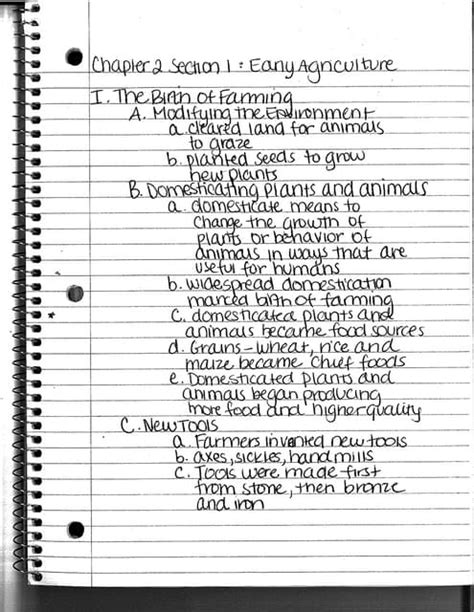 Chapter 2 Section 1: Early Agriculture
I. The Birth of Farming
A. Modifying the Environment
a. cleared land for animals
to graze
b. planted seeds to grow
new plants
B. Domesticating plants and animals
a. domesticate means to
change the growth of
plants or behavior of
animals in ways that are
useful for humans
b. widespread domestication
marced birth of farming
* c. domesticated plants and
animals became food sources
d. Grains - wheat, rice and
maize became chief foods
e. Domesticated plants and
animals began producing
more food and higher quality
C. New Tools
a. Farmers invented new tools
b. axes, sickles, hand mills
c. Tools were made first
from stone, then bronze
and iron